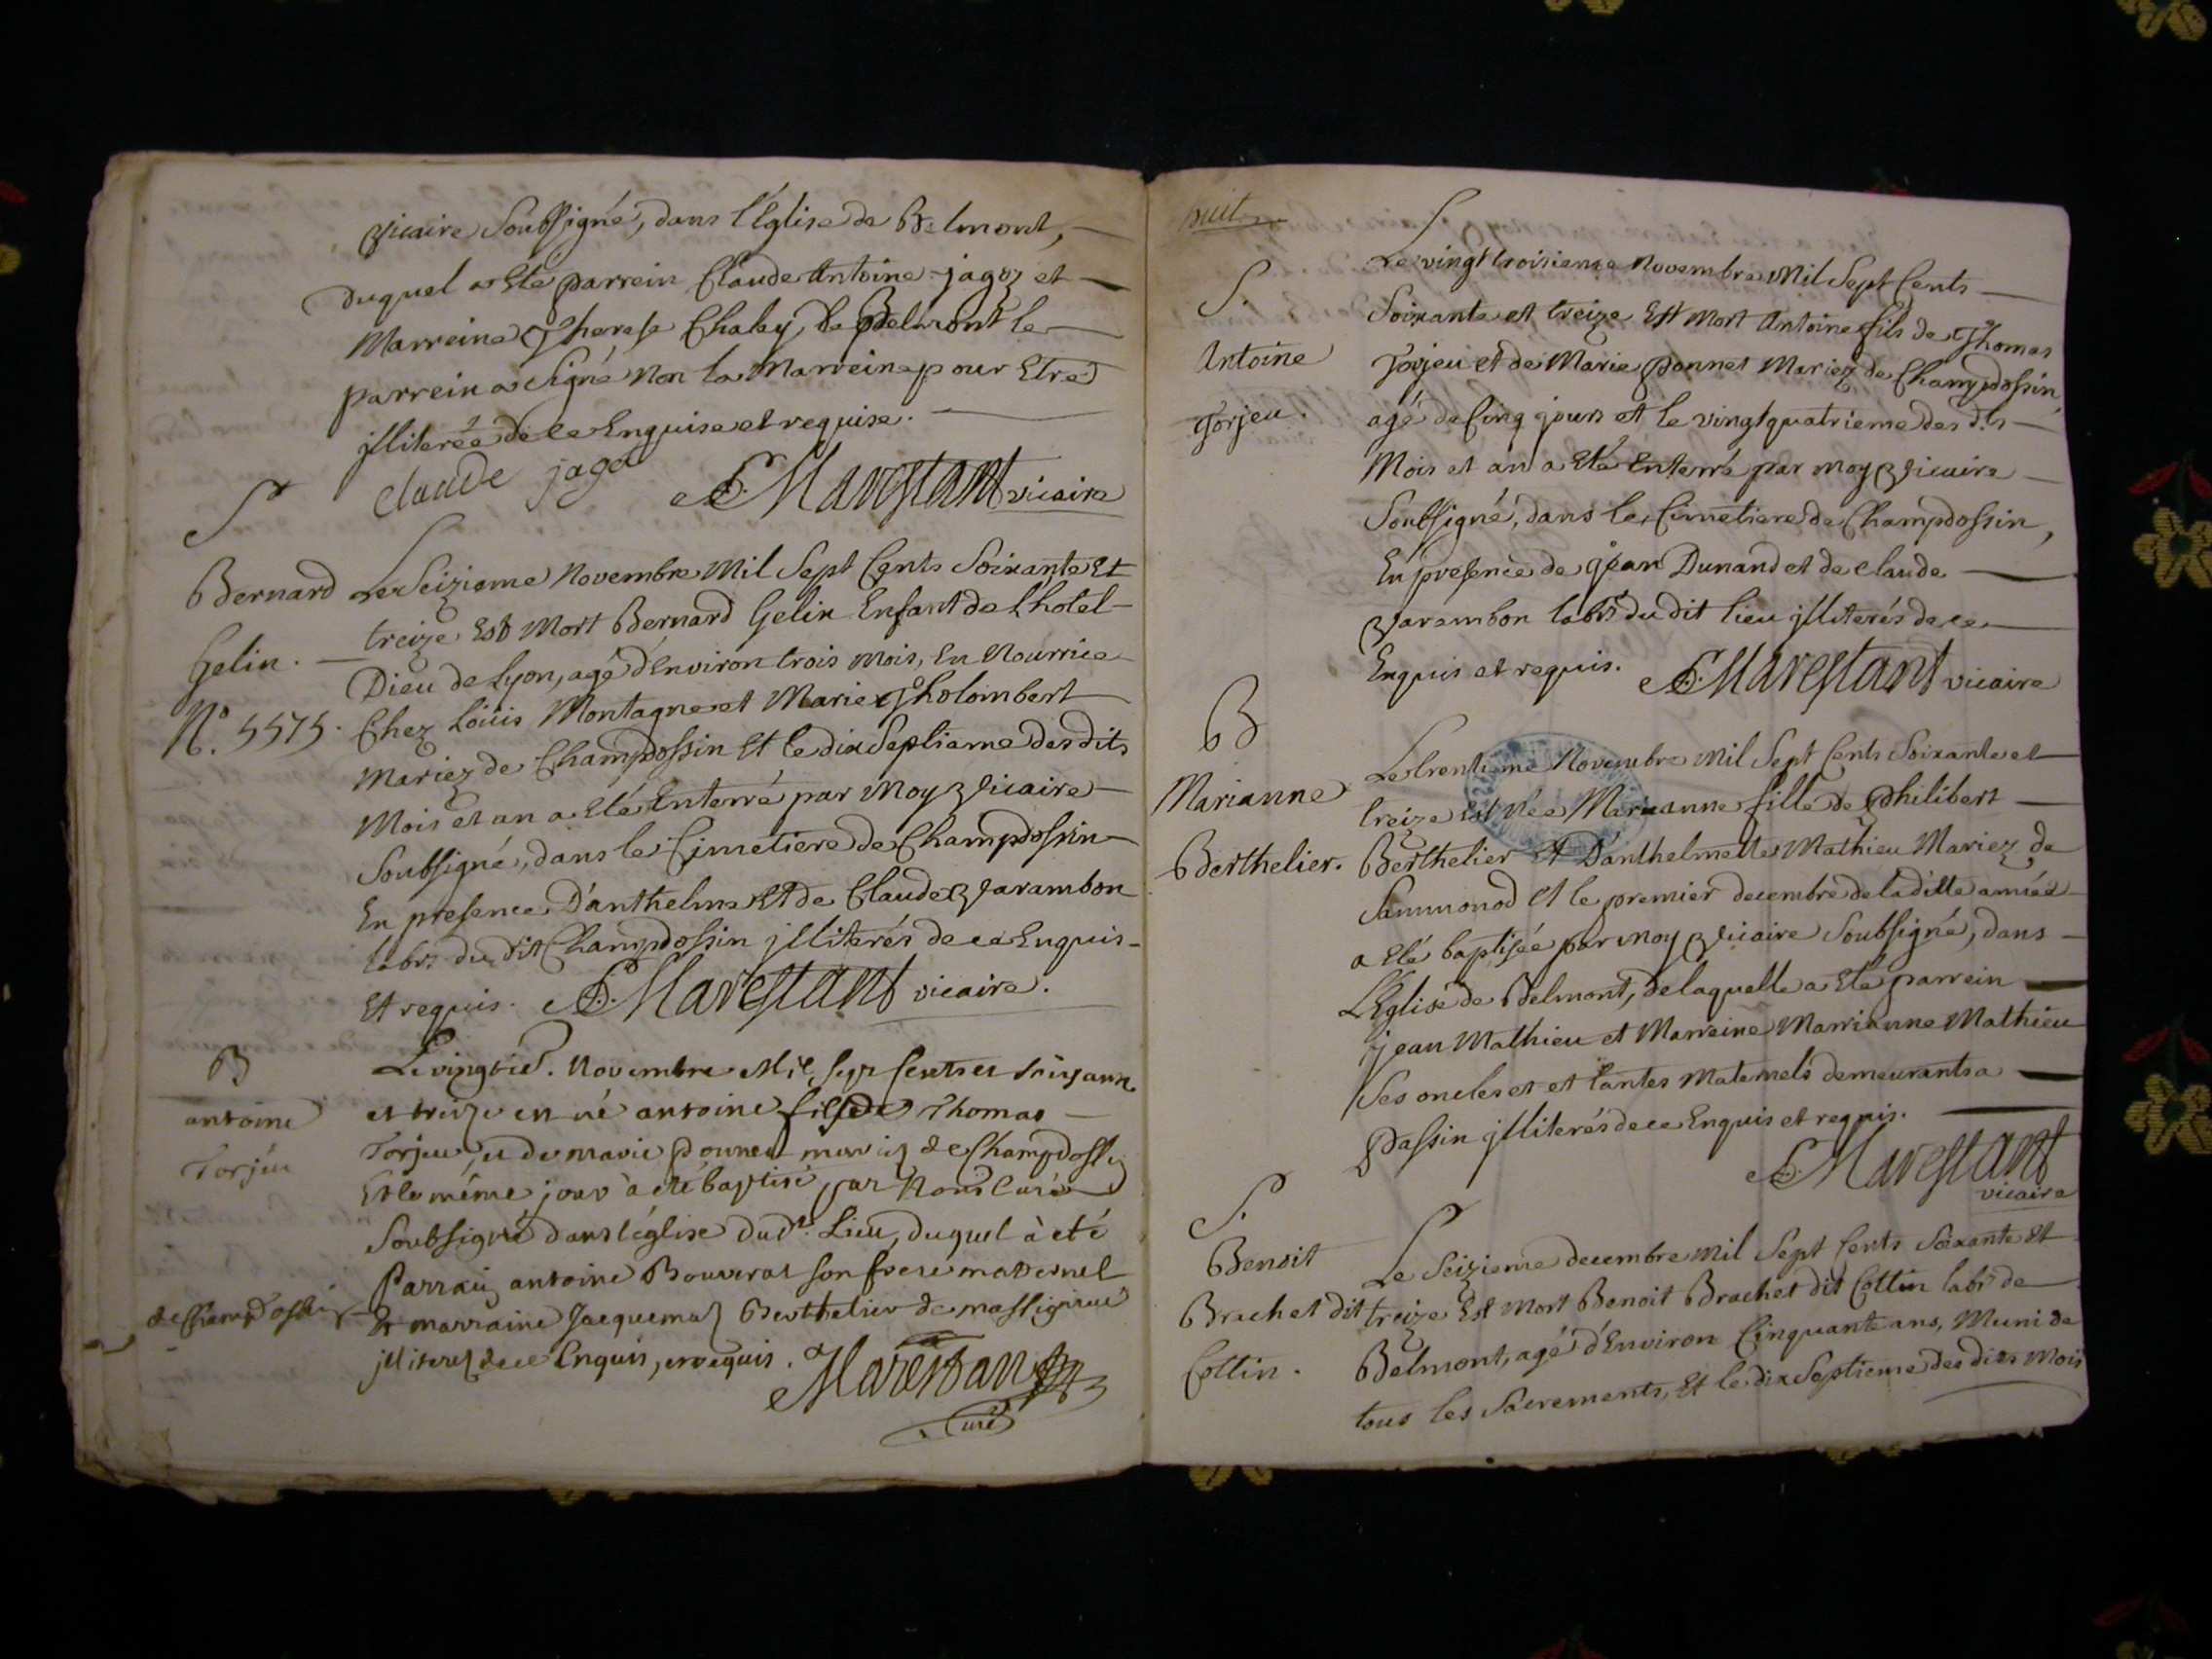 vicaire Soubsigné, dans l'Eglise de Belmont,
duquel a Eté parrein Claude Antoine jagoz et
Marreine Therese Chaley, de Belmont le
parrein a Signé Non la Marreine pour Etre
jlliterée de ce Enquise et requise.
Claude jago Marestant vicaire
S
Bernard
Gelin.
N.º 5575.
Le Seizieme Novembre Mil Sept Cents Soixante Et
treize Est Mort Bernard Gelin Enfant de L'hotel
Dieu de Lyon, agé d'Environ trois Mois, En Nourrice
Chez Loüis Montagne et Marie Tholombert
Mariez de Champdossin Et le dix Septieme des dits
Mois et an a Eté Enterré par Moy Vicaire
Soubsigné, dans le Cimetiere de Champdossin
En presence D'anthelme Et de Claude Varambon
labrs du dit Champdossin jlliterés de ce Enquis
Et requis. Marestant vicaire.
B
antoine
Torjeu
Le vingtie. Novembre Mil Sept Cents et soixante
et treize en né antoine fils de Thomas
Torjeu, et de marie Ponnet mariez de Champdossin
Et le même jour à eté baptisé par Nous Curé
Soubsigné dans l'église dud.t Lieu, duquel à eté
Parrain antoine Bouvrat son frere maternel
de Champdossin
Et marraine Jacquema Berthelier de massignieu
jlliterez de ce Enquis, et requis. Marestan
Curé
huit
S.
Antoine
Torjeu.
Le vingt troisieme Novembre Mil Sept Cents
Soixante et treize Est Mort Antoine fils de Thomas
Torjeu et de Marie Ponnet Mariez de Champdossin,
agé de Cinq jours et le vingt quatrieme des d.ts
Mois et an a Eté Enterré par moy Vicaire
Soubsigné, dans le Cimetiere de Champdossin,
En presence de jean Dunand et de Claude
Varambon labrs du dit lieu jlliterés de ce
Enquis et requis. Marestant vicaire
B
Marianne
Berthelier.
Le trentieme Novembre Mil Sept Cents Soixante et
treize Est Née Marianne fille de Philibert
Berthelier et D'anthelmette Mathieu Mariez de
Sammonod et le premier decembre de la ditte année
a Eté baptisée par Moy Vicaire Soubsigné, dans
L'Eglise de Belmont, de laquelle a Eté parrein
jean Mathieu et Marreine Marrianne Mathieu
Ses oncles et et tantes Maternels demeurants a
Passin jlliterés de ce Enquis et requis.
Marestant
vicaire
S.
Benoit
Brachet dit
Collin.
Le Seizieme decembre Mil Sept Cents Soixante Et
treize Est Mort Benoit Brachet dit Collin labr de
Belmont, agé d'Environ Cinquante ans, Muni de
tous les Sacrements, Et le dix Septieme des dits Mois